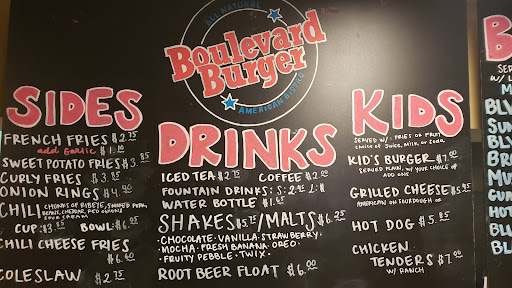 ALL NATURAL
Boulevard
Burger
AMERICAN BISTRO
SIDES
FRENCH FRIES $2.75
add Garlic $1.10
SWEET POTATO FRIES $3.85
CURLY FRIES $3.85
ONION RINGS $4.90
CHILI CHUNKS OF RIBEYE, SMOKED PORK,
BEANS, CHEDDAR, RED ONIONS
SOUR CREAM
CUP: $3.85 BOWL: $6.95
CHILI CHEESE FRIES
$6.00
COLESLAW $2.75
DRINKS
ICED TEA $2.75 COFFEE $2.00
FOUNTAIN DRINKS: S: 2.45 L:
WATER BOTTLE $1.65
SHAKES $5.75/MALTS $6.25
• CHOCOLATE • VANILLA • STRAWBERRY •
• MOCHA • FRESH BANANA • OREO •
• FRUITY PEBBLE • TWIX •
ROOT BEER FLOAT $6.00
KIDS
SERVED W/: FRIES OR FRUIT
choice of Juice, Milk or Soda.
KID'S BURGER $7.00
SERVED PLAIN, w/ YOUR CHOICE OF
ADD ONS
GRILLED CHEESE $5.95
AMERICAN ON SOURDOUGH OR
HOT DOG $5.85
CHICKEN
TENDERS $7.00
W/ RANCH
B
SER
w/ L
M
BLV
SUN
BL
BR
MU
GU
HO
BL
BL